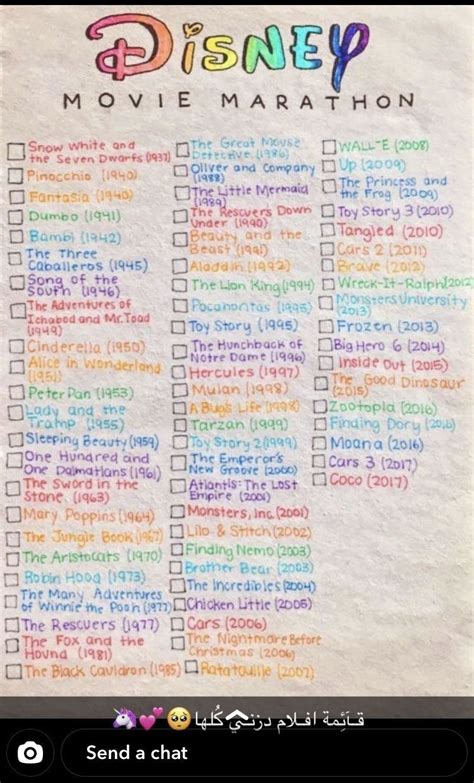 Disney
MOVIE MARATHON
Snow White and
the Seven Dwarfs (1937)
Pinocchio (1940)
Fantasia (1940)
Dumbo (1941)
Bambi (1942)
The Three
Caballeros (1945)
Song of the
South (1946)
The Adventures of
Ichabod and Mr. Toad
(1949)
Cinderella (1950)
Alice in Wonderland
(1951)
Peter Pan (1953)
Lady and the
Tramp (1955)
Sleeping Beauty (1959)
One Hundred and
One Dalmatians (1961)
The Sword in the
Stone (1963)
Mary Poppins (1964)
The Jungle Book (1967)
The Aristocats (1970)
Robin Hood (1973)
The Many Adventures
of Winnie the Pooh (1977)
The Rescuers (1977)
The Fox and the
Hound (1981)
The Black Cauldron (1985)
The Great Mouse
Detective (1986)
Oliver and Company
(1988)
The Little Mermaid
(1989)
The Rescuers Down
Under (1990)
Beauty and the
Beast (1991)
Aladdin (1992)
The Lion King (1994)
Pocahontas (1995)
Toy Story (1995)
The Hunchback of
Notre Dame (1996)
Hercules (1997)
Mulan (1998)
A Bug's Life (1998)
Tarzan (1999)
Toy Story 2 (1999)
The Emperor's
New Groove (2000)
Atlantis: The Lost
Empire (2001)
Monsters, Inc. (2001)
Lilo & Stitch (2002)
Finding Nemo (2003)
Brother Bear (2003)
The Incredibles (2004)
Chicken Little (2005)
Cars (2006)
The Nightmare Before
Christmas (2006)
Ratatouille (2007)
WALL-E (2008)
Up (2009)
The Princess and
the Frog (2009)
Toy Story 3 (2010)
Tangled (2010)
Cars 2 (2011)
Brave (2012)
Wreck-It-Ralph (2012)
Monsters University
(2013)
Frozen (2013)
Big Hero 6 (2014)
Inside Out (2015)
The Good Dinosaur
(2015)
Zootopia (2016)
Finding Dory (2016)
Moana (2016)
Cars 3 (2017)
Coco (2017)
قـائمة افـلام دزنـي كُلها🥺💕🦄
Send a chat